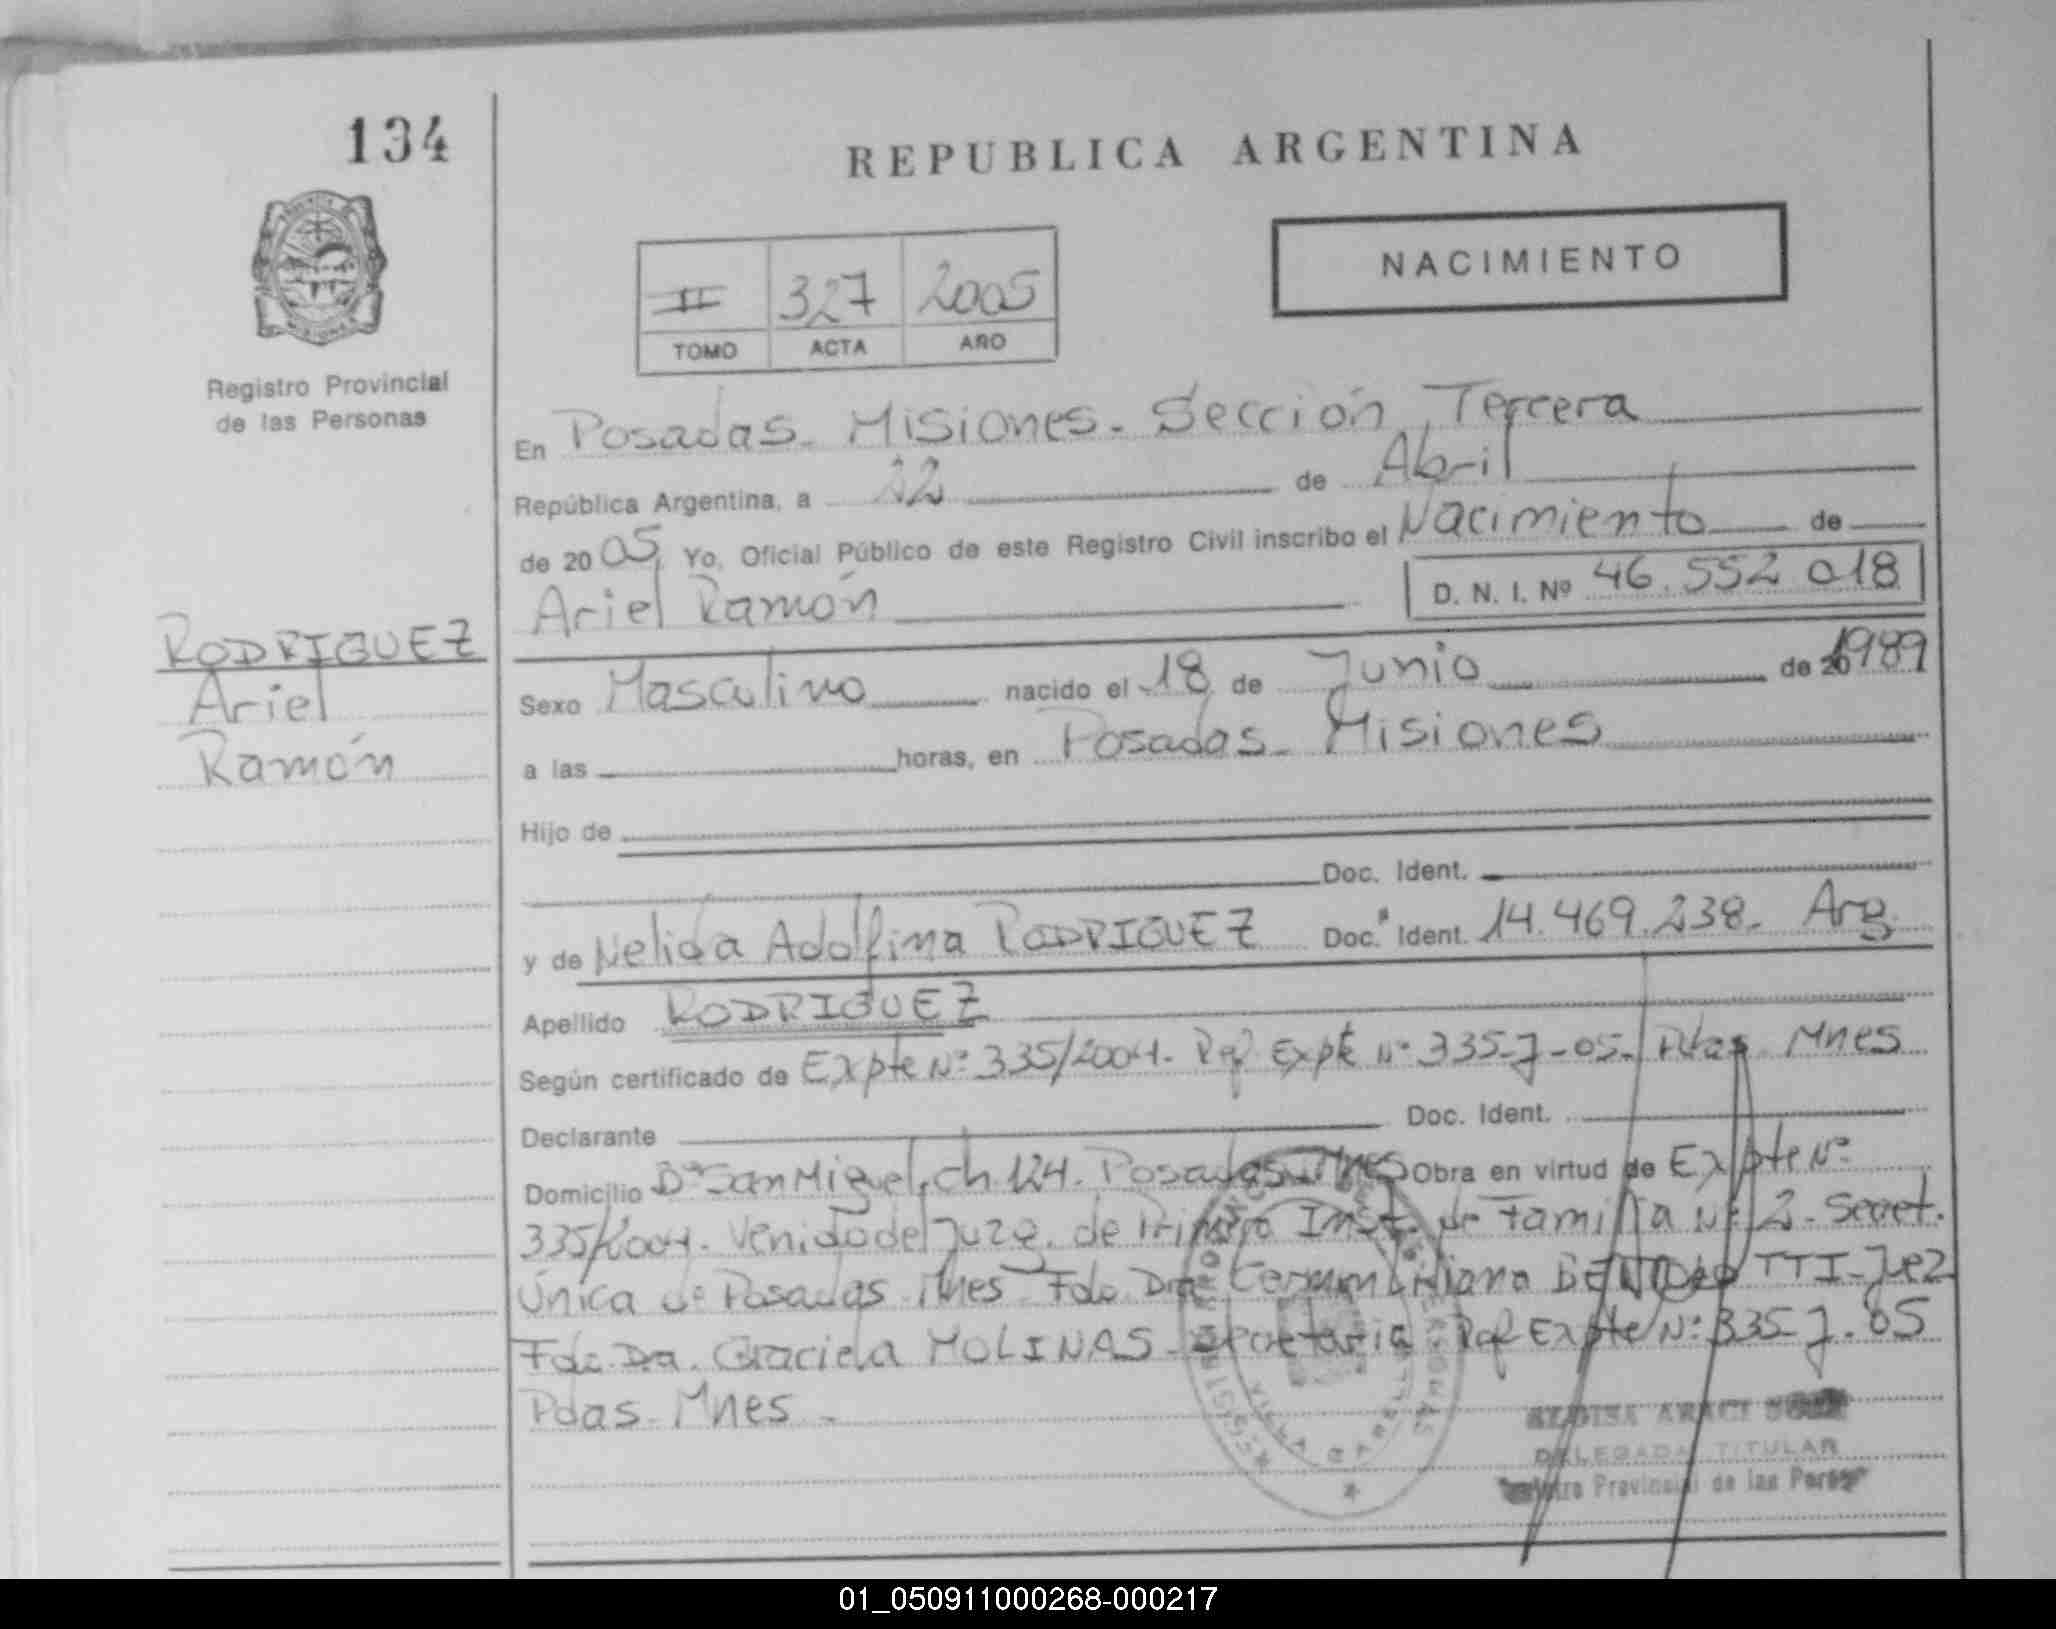 134
REPUBLICA ARGENTINA
NACIMIENTO
II 327 2005
TOMO ACTA AÑO
Registro Provincial
de las Personas
En Posadas - Misiones - Sección Tercera
República Argentina, a 22 de Abril
de 2005 Yo, Oficial Público de este Registro Civil inscribo el Nacimiento de
Ariel Ramón D. N. I. Nº 46.552 018
RODRIGUEZ
Ariel
Ramón
Sexo Masculino nacido el 18 de Junio de 20 1989
a las horas, en Posadas - Misiones
Hijo de
Doc. Ident.
y de Nelida Adolfina RODRIGUEZ Doc. Ident. 14.469.238. Arg.
Apellido RODRIGUEZ
Según certificado de Expte Nº 335/2004. Ref Expte Nº 335-J-05- Pdas Mnes
Declarante Doc. Ident.
Domicilio Bº San Miguel, ch 124. Posadas Mnes Obra en virtud de Expte Nº
335/2004. Venido del Juzg. de Primera Inst. de Familia Nº 2 - Secret.
Única de Posadas Mnes Fdo. Dra Juez
Fdo. Dra. Graciela MOLINAS - Secretaria Ref Expte Nº 335-J-05
Pdas - Mnes -
DELEGADA TITULAR
Registro Provincial de las Personas
01_050911000268-000217